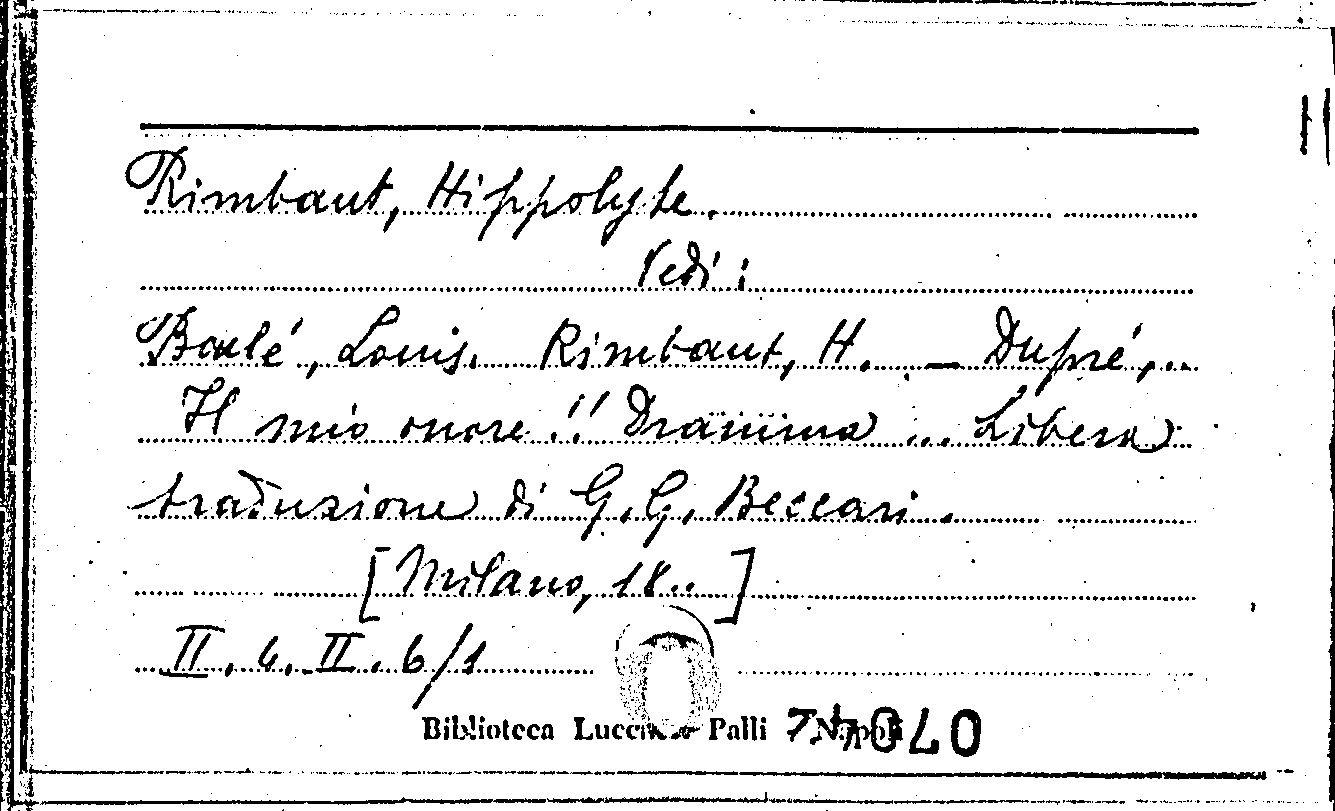 Rimbaut, Hippolyte.
Vedi:
Boulé, Louis. Rimbaut, H. – Dupré, ..
Il mio onore!! Dramma ... Libera
traduzione di G. G. Beccari.
[Milano, 18..]
II. 6. II. 6/1
Biblioteca Lucchesi Palli Napoli